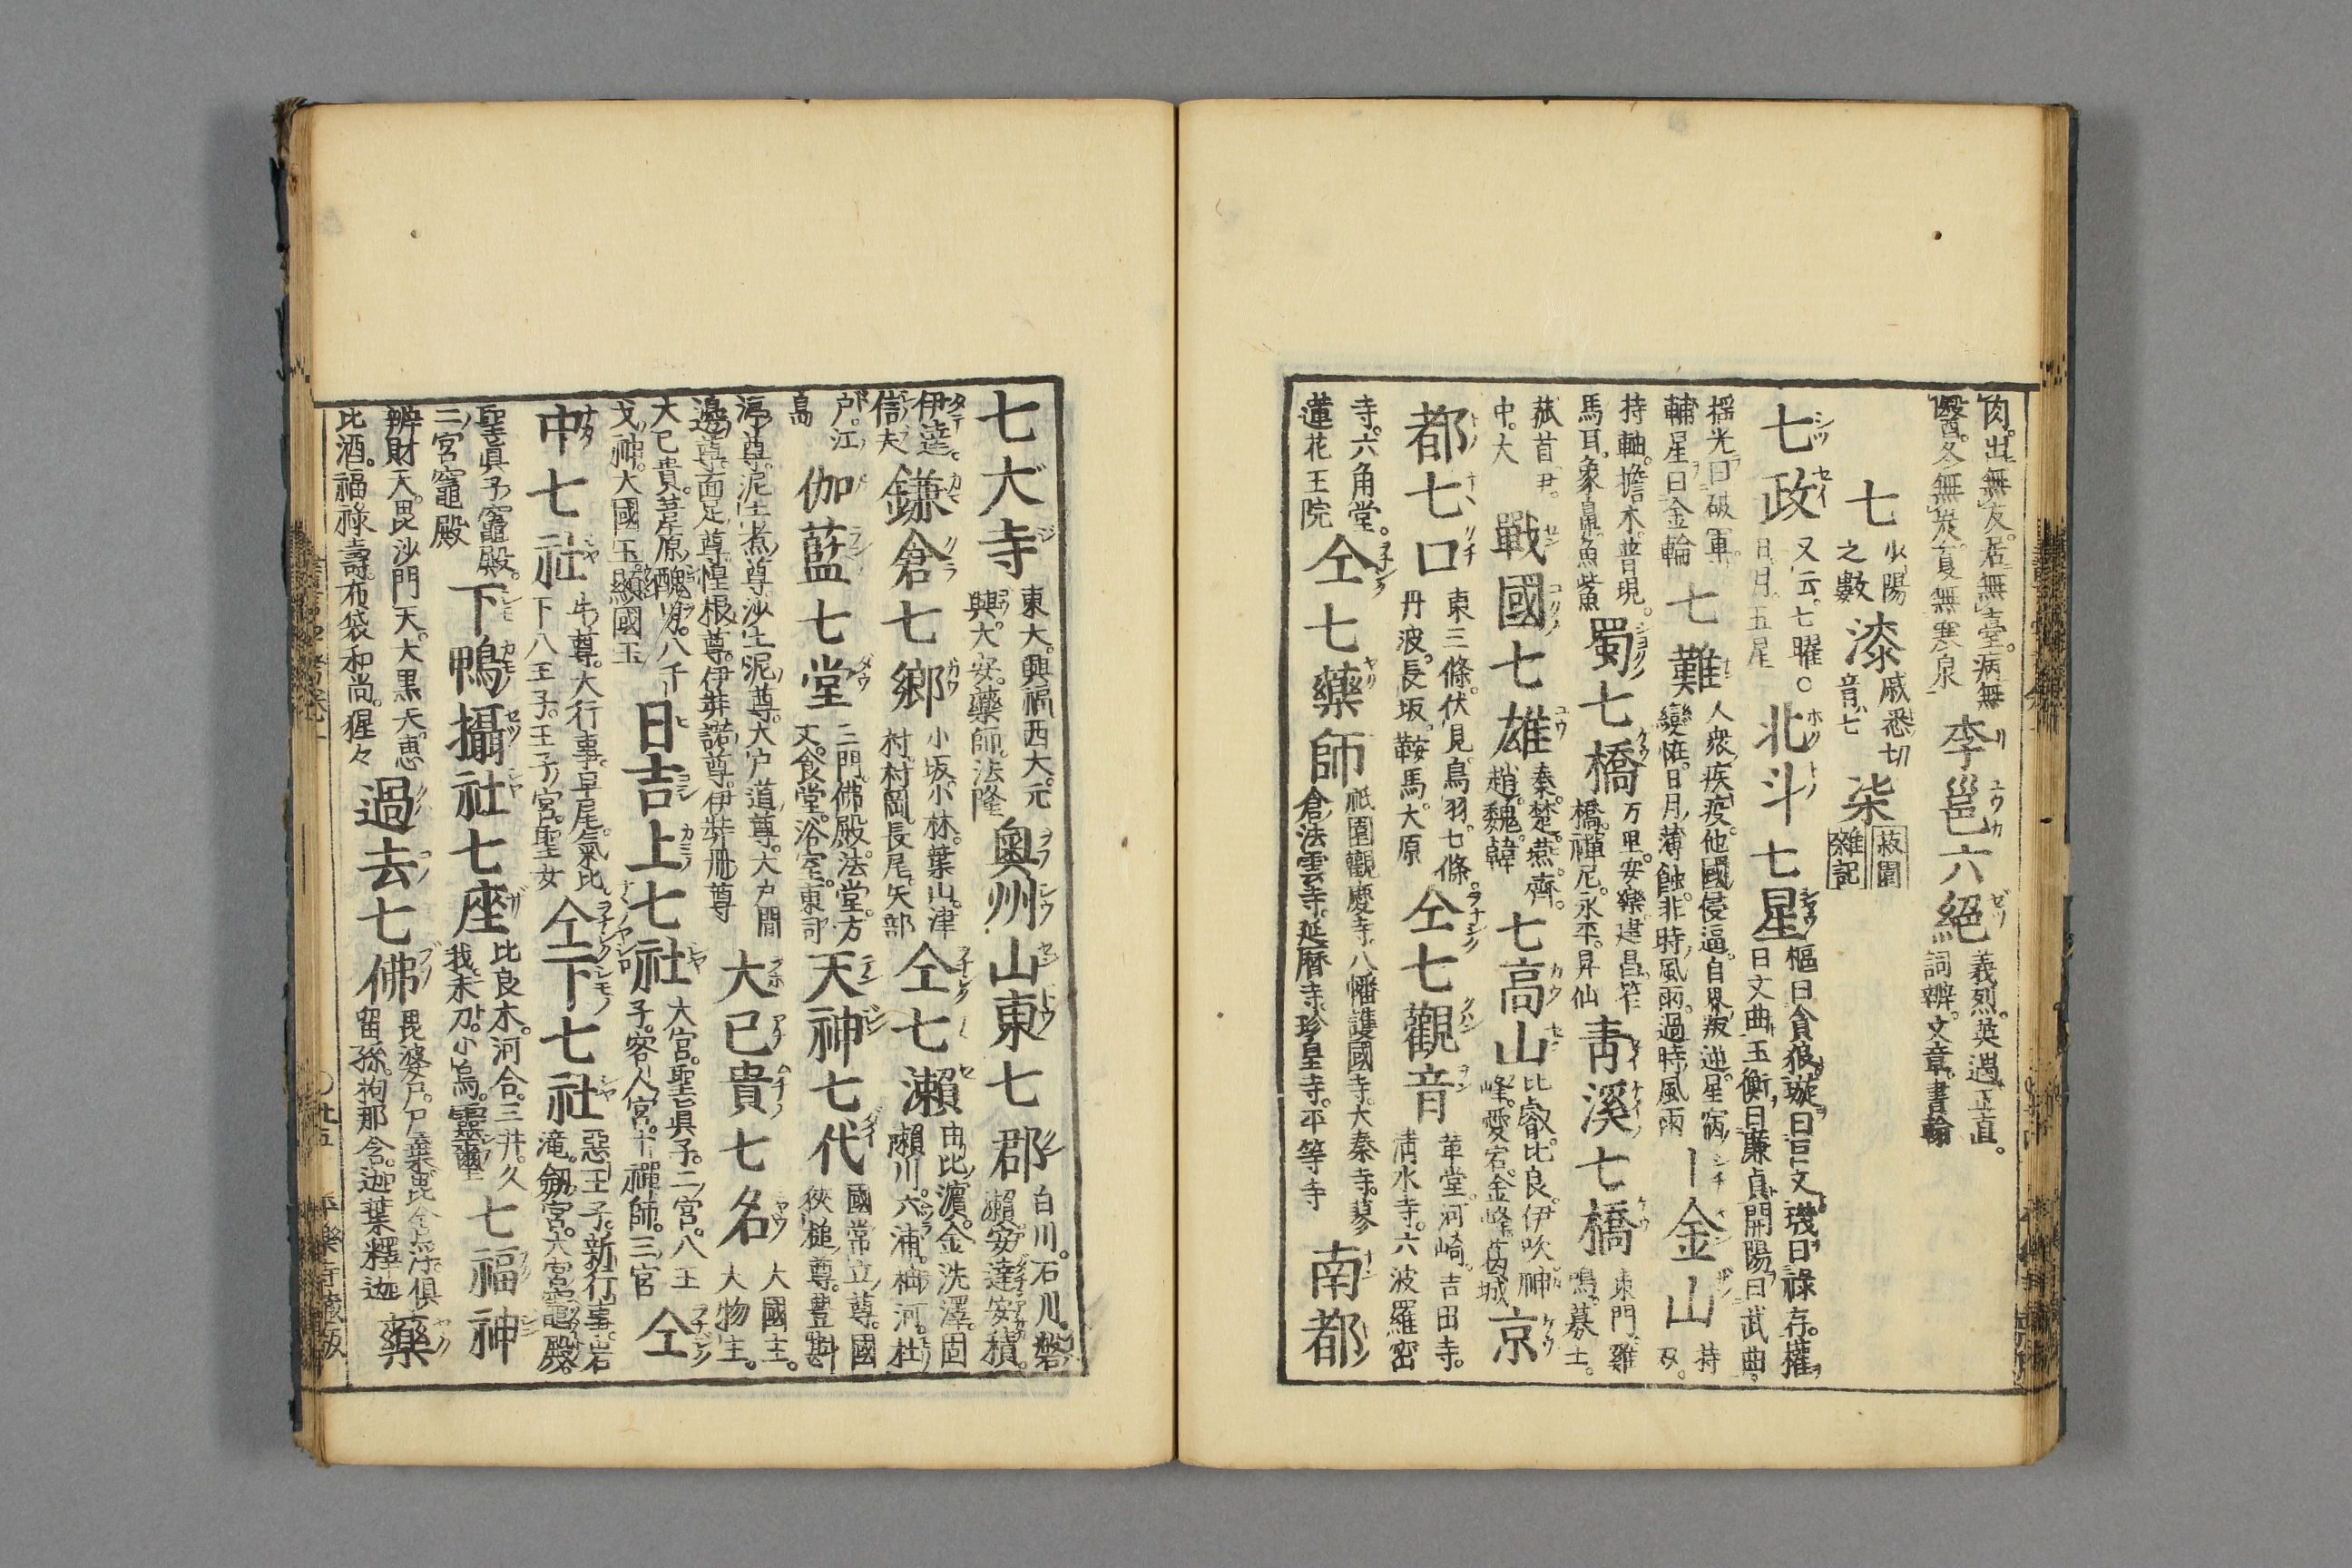 肉。出無友。居無臺。病無
醫。冬無炭。夏無寒泉
李邕六絕
義烈。英邁。正直。
詞辨。文章。書翰
七
少陽
之數
漆
戚悉切
音七
柒
菽園
雜記
七政
又云。七曜。
日。月。五星
北斗七星
樞曰貪狼。璇曰巨文。璣曰祿存。權
曰文曲。玉衡曰廉貞。開陽曰武曲。
搖光曰破軍。
輔星曰金輪
七難
人衆疾疫。他國侵逼。自界叛逆。星宿
變恠。日月薄蝕。非時風雨。過時風雨
丨金山
持
双。
持軸。擔木。普現。
馬耳。象鼻。魚觜
蜀七橋
万里。安樂。建昌。笮
橋。禪尼。永平。昇仙
青溪七橋
東門。雞
鳴。募士。
菰首。尹。
中。大
戰國七雄
秦。楚。燕。齊。
趙。魏。韓
七高山
比叡。比良。伊吹。神
峰。愛宕。金峰。葛城
京
都七口
東三條。伏見。鳥羽。七條。
丹波。長坂。鞍馬。大原
仝七觀音
革堂。河崎。吉田寺。
清水寺。六波羅密
寺。六角堂。
蓮花王院
仝七藥師
祇園觀慶寺。八幡護國寺。大秦寺。蓼
倉法雲寺。延曆寺。珍皇寺。平等寺
南都
七大寺
東大。興福。西大。元
興。大安。藥師。法隆
奧州山東七郡
白川。石川。磐
瀨。安達。安積。
伊達。
信夫
鎌倉七鄉
小坂。小林。葉山。津
村。村岡。長尾。矢部
仝七瀨
由比濱。金洗澤。固
瀨川。六浦。柳河。杜
戶。江
島
伽藍七堂
三門。佛殿。法堂。方
丈。食堂。浴室。東司
天神七代
國常立尊。國
狹槌尊。豊斟
渟尊。泥土煮尊沙土泥尊。大戶道尊。大戶間
邊尊。面足尊惶根尊。伊弉諾尊。伊弉冊尊
大已貴七名
大國主。
大物主。
大已貴。葦原醜男。八千
戈神。大國玉。顯國玉
日吉上七社
大宮。聖眞子。二宮。八王
子。客人宮。十禪師。三宮
仝
中七社
牛尊。大行事。早尾。氣比
下八王子。王子宮。聖女
仝下七社
惡王子。新行事。岩
滝。劔宮。大宮竈殿。
聖眞子竈殿。
二宮竈殿
下鴨攝社七座
比良木。河合。三井。久
我。末刀。小烏。靈璽
七福神
辨財天。毘沙門天。大黒天。恵
比酒。福祿壽。布袋和尚。猩々
過去七佛
毘婆尸。尸棄。毘舍浮。俱
留孫。拘那含。迦葉。釋迦
藥
平樂寺藏版